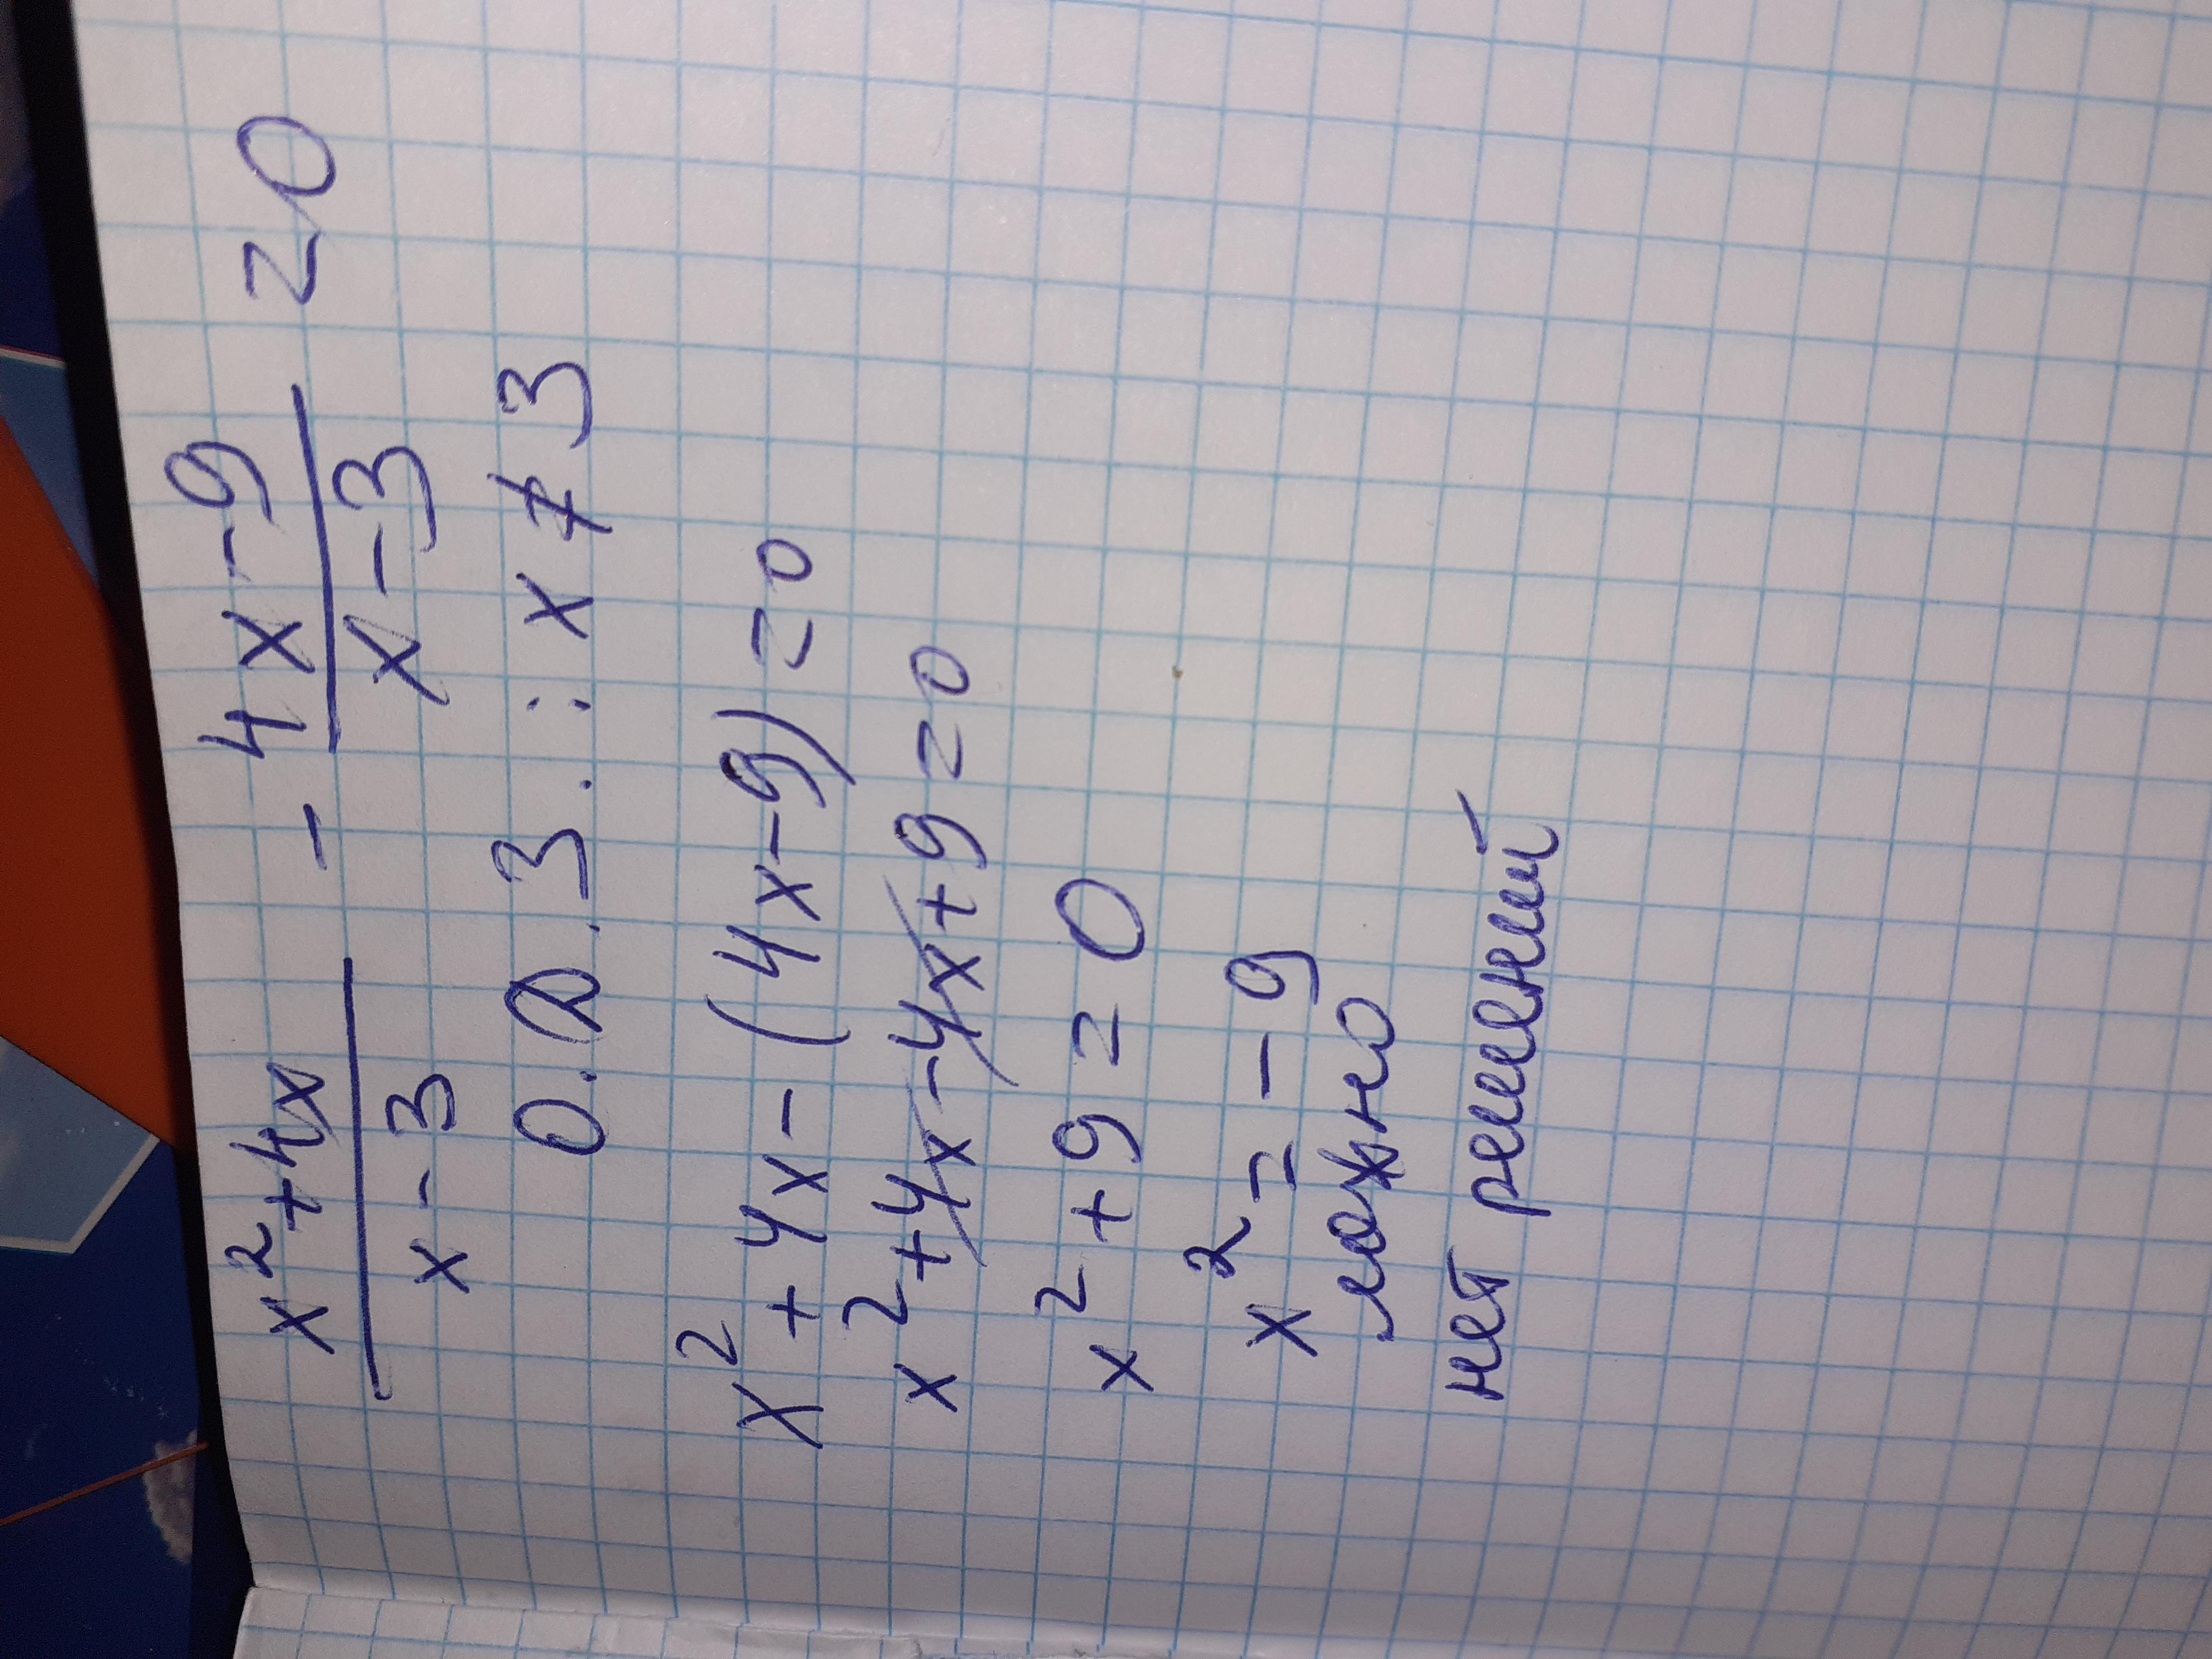 x²+4x / x-3 - 4x-9 / x-3 = 0
О.Д.З.: x ≠ 3
x²+4x-(4x-9)=0
x²+4x-4x+9=0
x²+9=0
x²=-9
ложно
нет решений